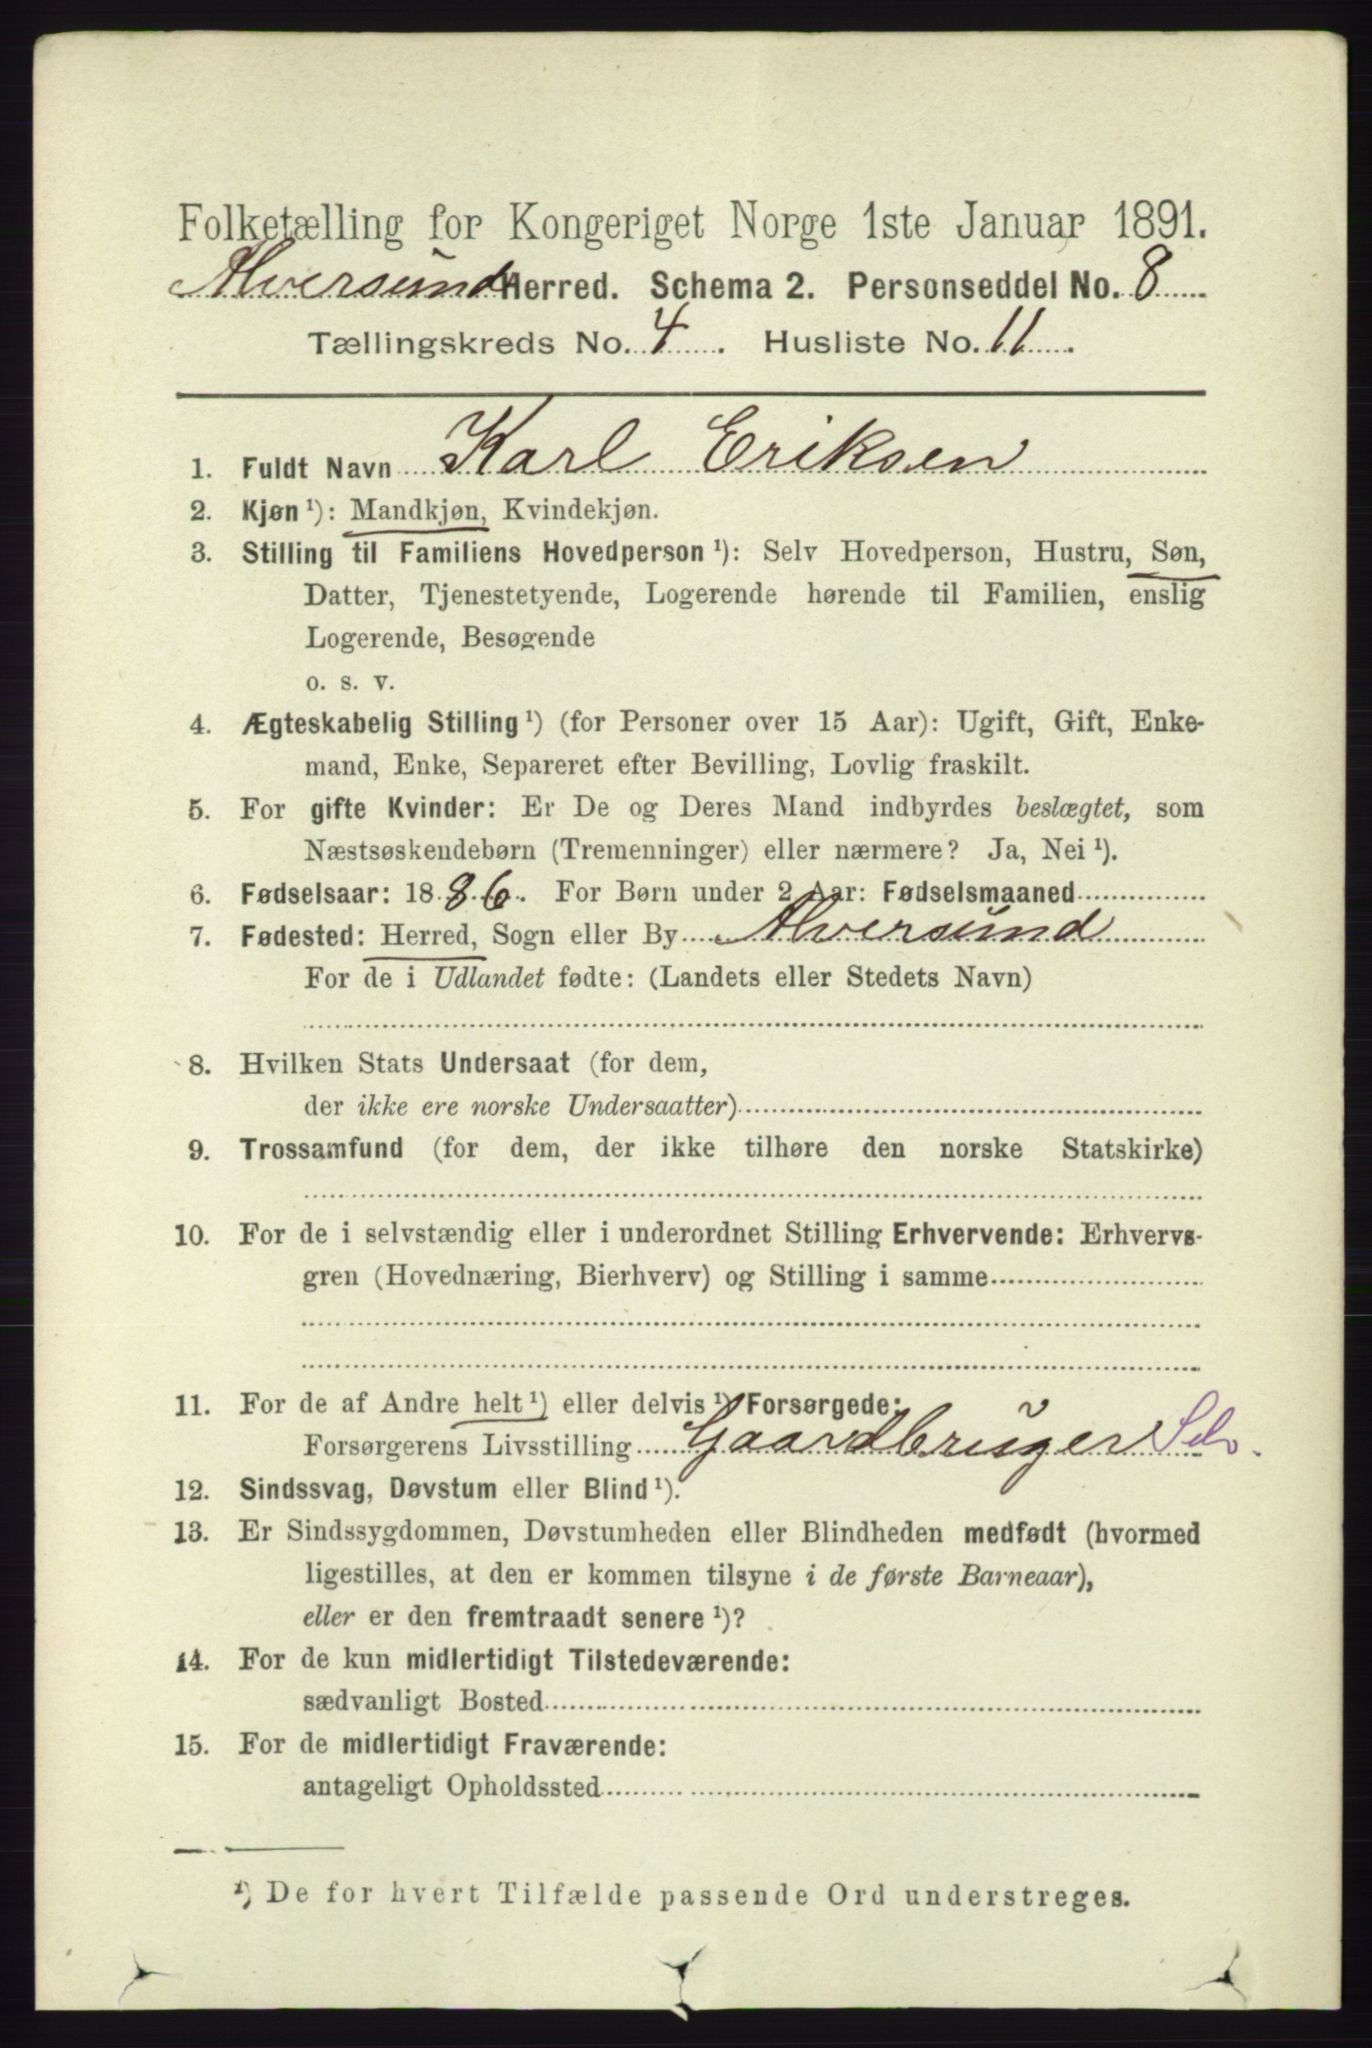 Folketælling for Kongeriget Norge 1ste Januar 1891.
Alversund Herred. Schema 2. Personseddel No. 8
Tællingskreds No. 4. Husliste No. 11.
1. Fuldt Navn Karl Eriksen
2. Kjøn ¹): Mandkjøn, Kvindekjøn.
3. Stilling til Familiens Hovedperson ¹): Selv Hovedperson, Hustru, Søn,
Datter, Tjenestetyende, Logerende hørende til Familien, enslig
Logerende, Besøgende
o. s. v.
4. Ægteskabelig Stilling ¹) (for Personer over 15 Aar): Ugift, Gift, Enke-
mand, Enke, Separeret efter Bevilling, Lovlig fraskilt.
5. For gifte Kvinder: Er De og Deres Mand indbyrdes beslægtet, som
Næstsøskendebørn (Tremenninger) eller nærmere? Ja, Nei ¹).
6. Fødselsaar: 1886. For Børn under 2 Aar: Fødselsmaaned
7. Fødested: Herred, Sogn eller By Alversund
For de i Udlandet fødte: (Landets eller Stedets Navn)
8. Hvilken Stats Undersaat (for dem,
der ikke ere norske Undersaatter)
9. Trossamfund (for dem, der ikke tilhøre den norske Statskirke)
10. For de i selvstændig eller i underordnet Stilling Erhvervende: Erhvervs-
gren (Hovednæring, Bierhverv) og Stilling i samme
11. For de af Andre helt ¹) eller delvis ¹) Forsørgede:
Forsørgerens Livsstilling Gaardbruger Selv.
12. Sindssvag, Døvstum eller Blind ¹).
13. Er Sindssygdommen, Døvstumheden eller Blindheden medfødt (hvormed
ligestilles, at den er kommen tilsyne i de første Barneaar),
eller er den fremtraadt senere ¹)?
14. For de kun midlertidigt Tilstedeværende:
sædvanligt Bosted
15. For de midlertidigt Fraværende:
antageligt Opholdssted
¹) De for hvert Tilfælde passende Ord understreges.